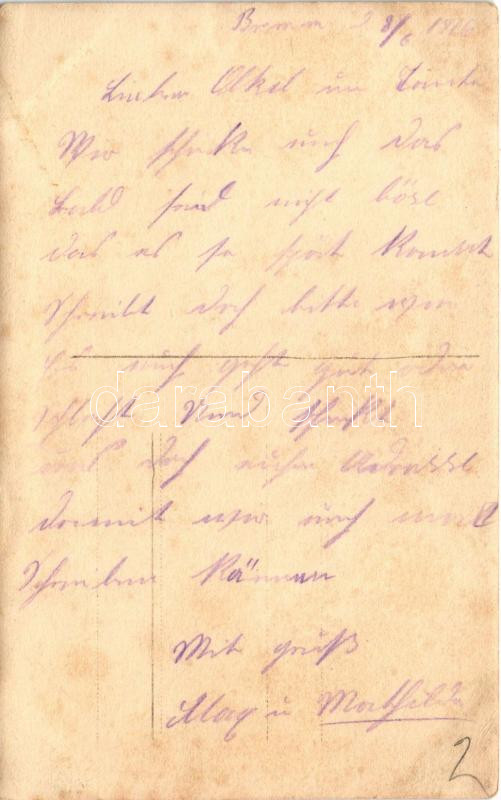 Bremen 28/6 1916
Lieber Onkel u Tante
Wir schicke euch das
Bald seid nicht böse
das es so spät kommt
Schreibt doch bitte wie
Es euch geht gut oder
schlecht Und schickt
uns doch eure Adresse
damit wir euch mal
Schreiben können
Mit gruß
Max u Mathilde
2
darabanth